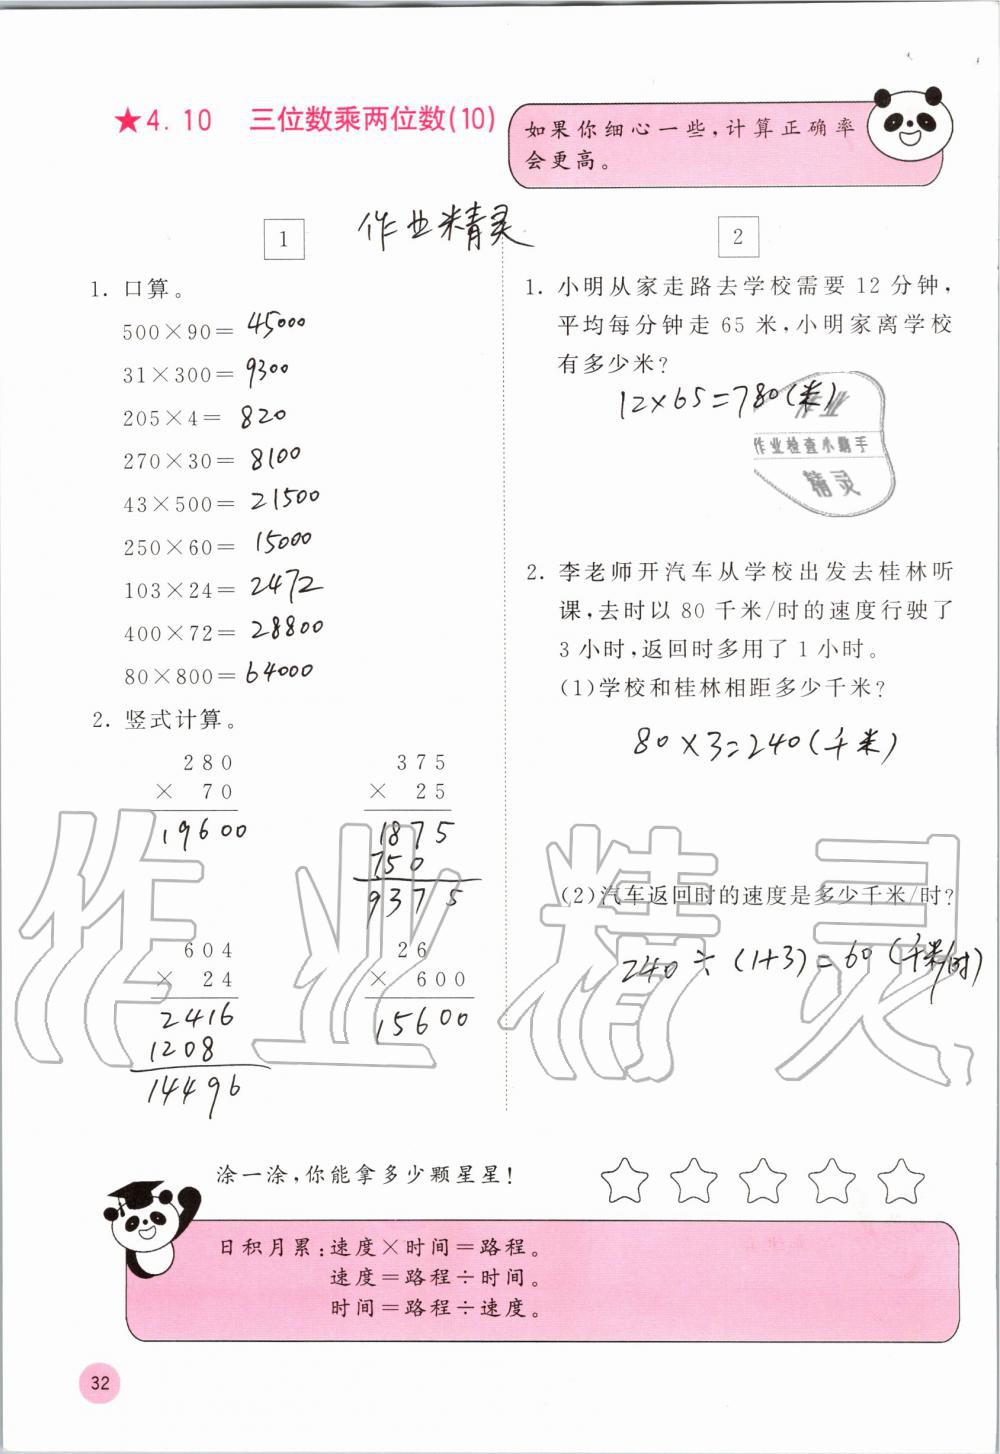 ★4.10 三位数乘两位数(10)
如果你细心一些,计算正确率
会更高。
作业精灵
1
1. 口算。
500×90= 45000
31×300= 9300
205×4= 820
270×30= 8100
43×500= 21500
250×60= 15000
103×24= 2472
400×72= 28800
80×800= 64000
2. 竖式计算。
280
× 70
19600
375
× 25
1875
750
9375
604
× 24
2416
1208
14496
26
× 600
15600
2
1. 小明从家走路去学校需要 12 分钟,
平均每分钟走 65 米,小明家离学校
有多少米?
12×65=780(米)
作业
作业检查小助手
精灵
2. 李老师开汽车从学校出发去桂林听
课,去时以 80 千米/时的速度行驶了
3 小时,返回时多用了 1 小时。
(1)学校和桂林相距多少千米?
80×3=240(千米)
(2)汽车返回时的速度是多少千米/时?
240÷(1+3)=60(千米/时)
作业精灵
涂一涂,你能拿多少颗星星!
日积月累:速度×时间=路程。
速度=路程÷时间。
时间=路程÷速度。
32